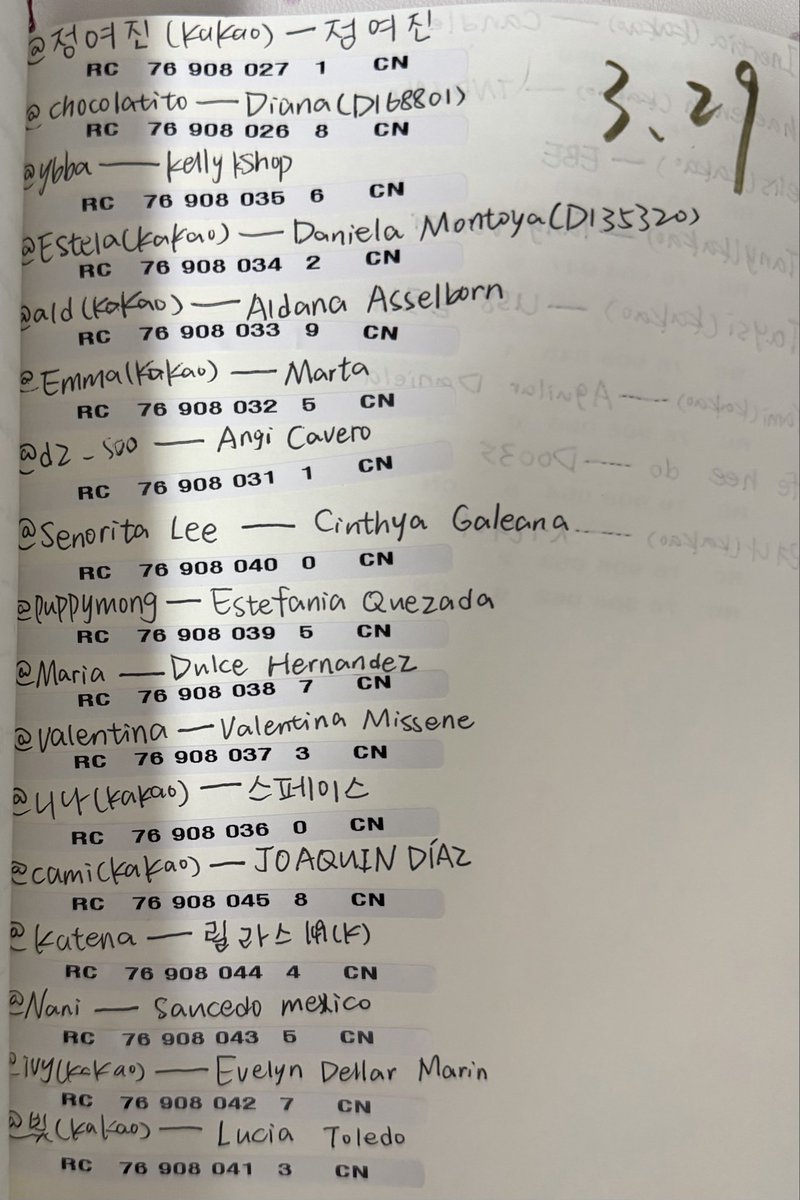 @정여진 (kakao) — 정여진
3、29
RC 76 908 027 1 CN
@chocolatito — Diana(D168801)
RC 76 908 026 8 CN
@ybba — kelly kshop
RC 76 908 035 6 CN
@Estela(kakao) — Daniela Montoya(D135320)
RC 76 908 034 2 CN
@ald(kakao) — Aldana Asselborn
RC 76 908 033 9 CN
@Emma(kakao) — Marta
RC 76 908 032 5 CN
@d2_soo — Angi Cavero
RC 76 908 031 1 CN
@Senorita Lee — Cinthya Galeana
RC 76 908 040 0 CN
@puppymong — Estefania Quezada
RC 76 908 039 5 CN
@Maria — Dulce Hernandez
RC 76 908 038 7 CN
@Valentina — Valentina Missene
RC 76 908 037 3 CN
@니나(kakao) — 스페이스
RC 76 908 036 0 CN
@cami(kakao) — JOAQUIN DÍAZ
RC 76 908 045 8 CN
@katena — 릴라스
RC 76 908 044 4 CN
@Nani — Saucedo mexico
RC 76 908 043 5 CN
@ivy(kakao) — Evelyn Dellar Marin
RC 76 908 042 7 CN
@빛(kakao) — Lucia Toledo
RC 76 908 041 3 CN